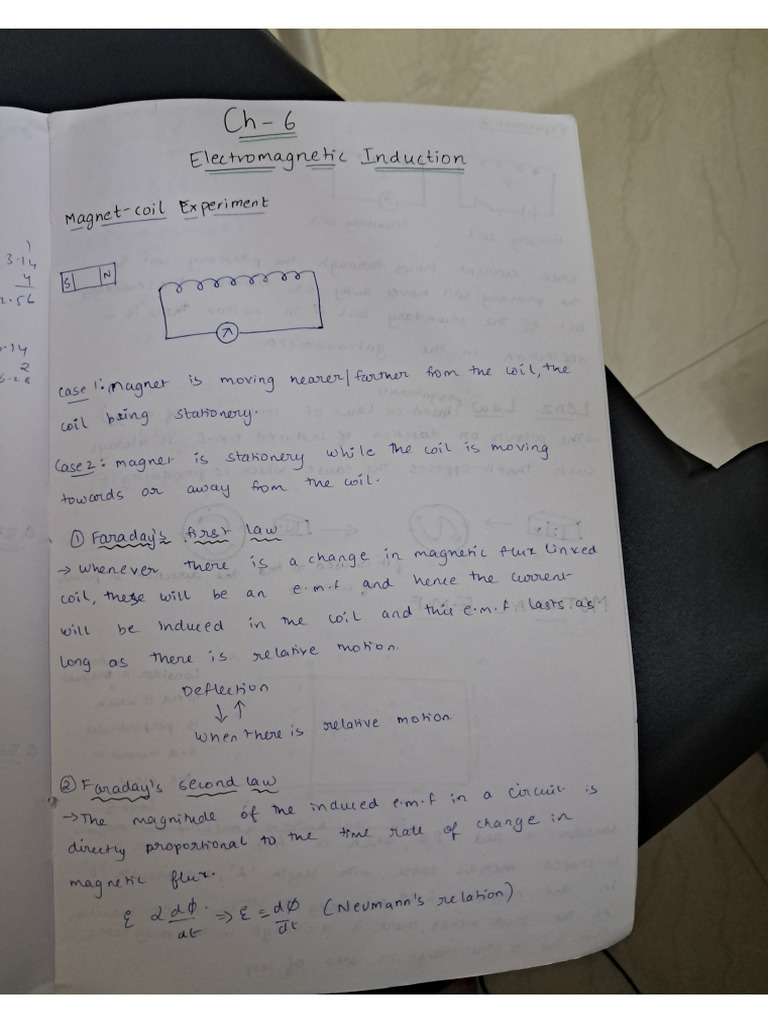 Ch-6
Electromagnetic Induction
Magnet-coil Experiment
S N
Case 1: Magnet is moving nearer/farther from the coil, the
coil being stationery.
Case 2: magnet is stationery while the coil is moving
towards or away from the coil.
① Faraday's first law
→ Whenever there is a change in magnetic flux linked
coil, these will be an e.m.f and hence the current
will be induced in the coil and this e.m.f lasts as
long as there is relative motion.
Deflection
↓↑
When there is relative motion
② Faraday's second law
→ The magnitude of the induced e.m.f in a circuit is
directly proportional to the time rate of change in
magnetic flux.
ε α dφ/dt ⇒ ε = dφ/dt (Neumann's relation)
1
3.14
4
2.56
2